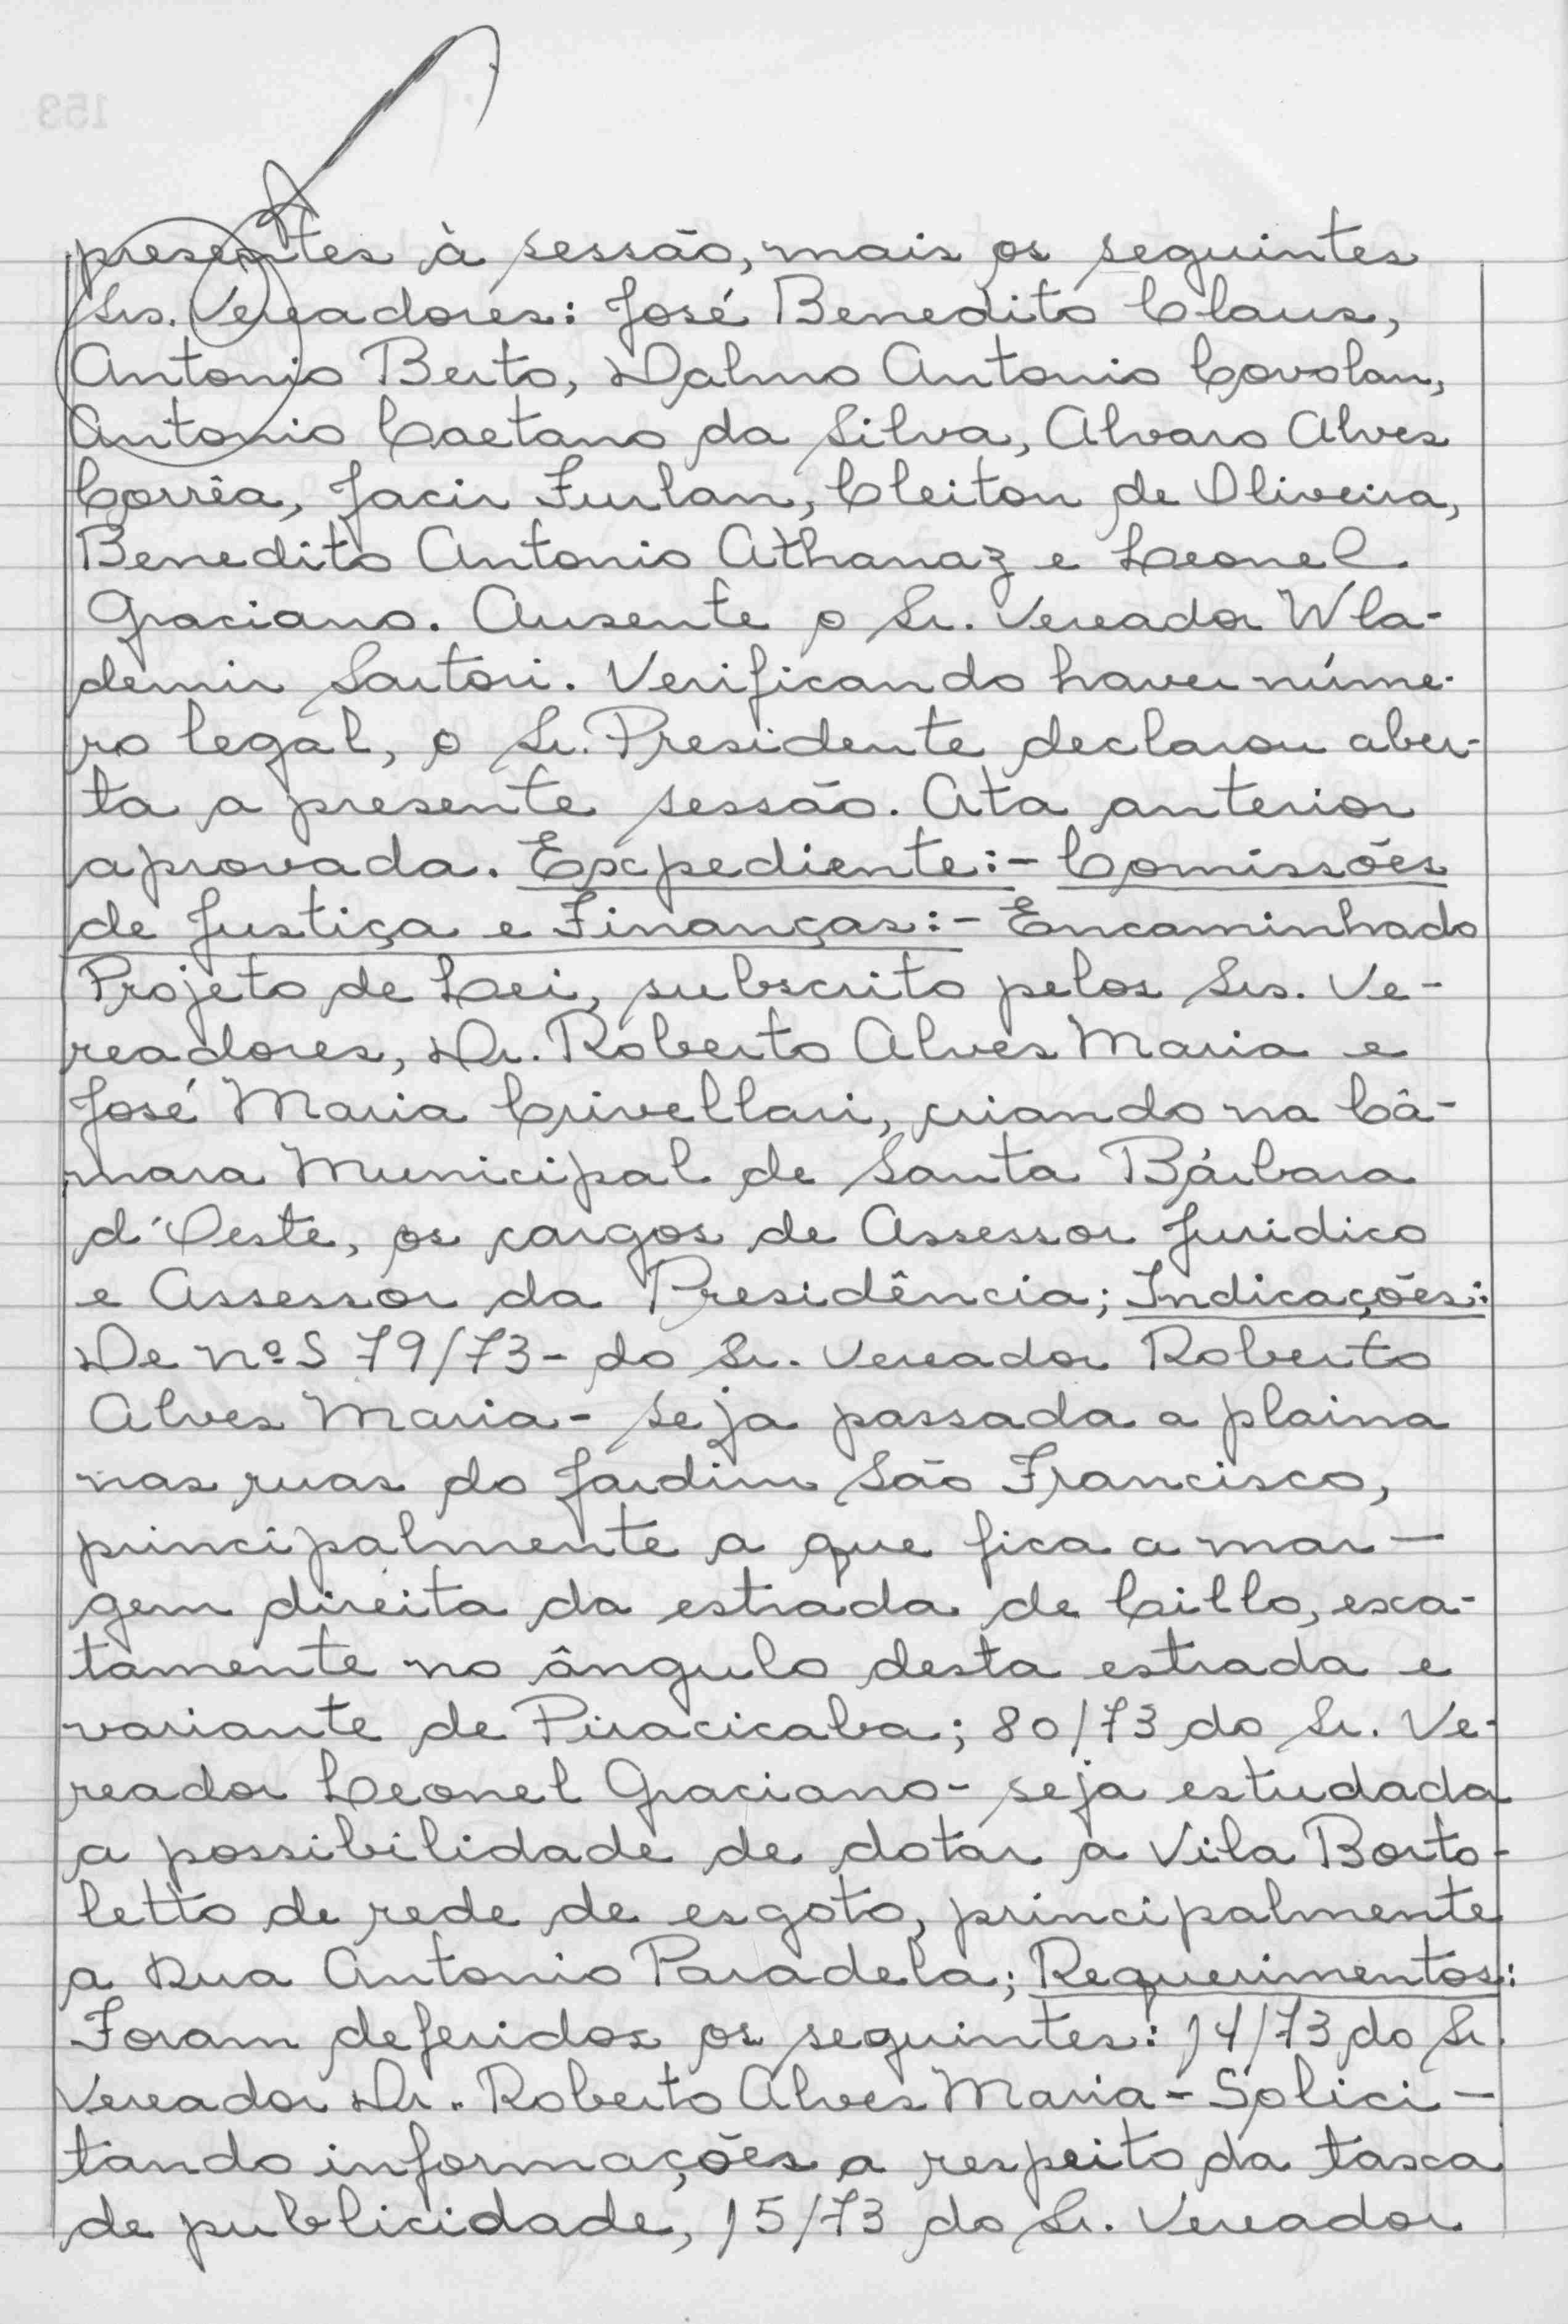 presentes à sessão, mais os seguintes
Srs. Vereadores: José Benedito Claus,
Antonio Berto, Dalmo Antonio Covolan,
Antonio Caetano da Silva, Alvaro Alves
Corrêa, Jacir Furlan, Cleiton de Oliveira,
Benedito Antonio Athanaz e Leonel
Graciano. Ausente o Sr. Vereador Wla-
demir Sartori. Verificando haver núme-
ro legal, o Sr. Presidente declarou aber-
ta a presente sessão. Ata anterior
aprovada. Expediente:- Comissões
de Justiça e Finanças:- Encaminhado
Projeto de Lei, subscrito pelos Srs. Ve-
readores, Dr. Roberto Alves Maria e
José Maria Crivellari, criando na Câ-
mara Municipal de Santa Bárbara
d'Oeste, os cargos de Assessor Juridico
e Assessor da Presidência; Indicações:
De nºS 79/73- do Sr. Vereador Roberto
Alves Maria- seja passada a plaina
nas ruas do Jardim São Francisco,
principalmente a que fica a mar-
gem direita da estrada de Cillo, exa-
tamente no ângulo desta estrada e
variante de Piracicaba; 80/73 do Sr. Ve-
reador Leonel Graciano- seja estudada
a possibilidade de dotar a Vila Borto-
letto de rede de esgoto, principalmente
a Rua Antonio Paradela; Requerimentos:
Foram deferidos os seguintes: 14/73 do Sr.
Vereador Dr. Roberto Alves Maria- Solici-
tando informações a respeito da taxa
de publicidade, 15/73 do Sr. Vereador